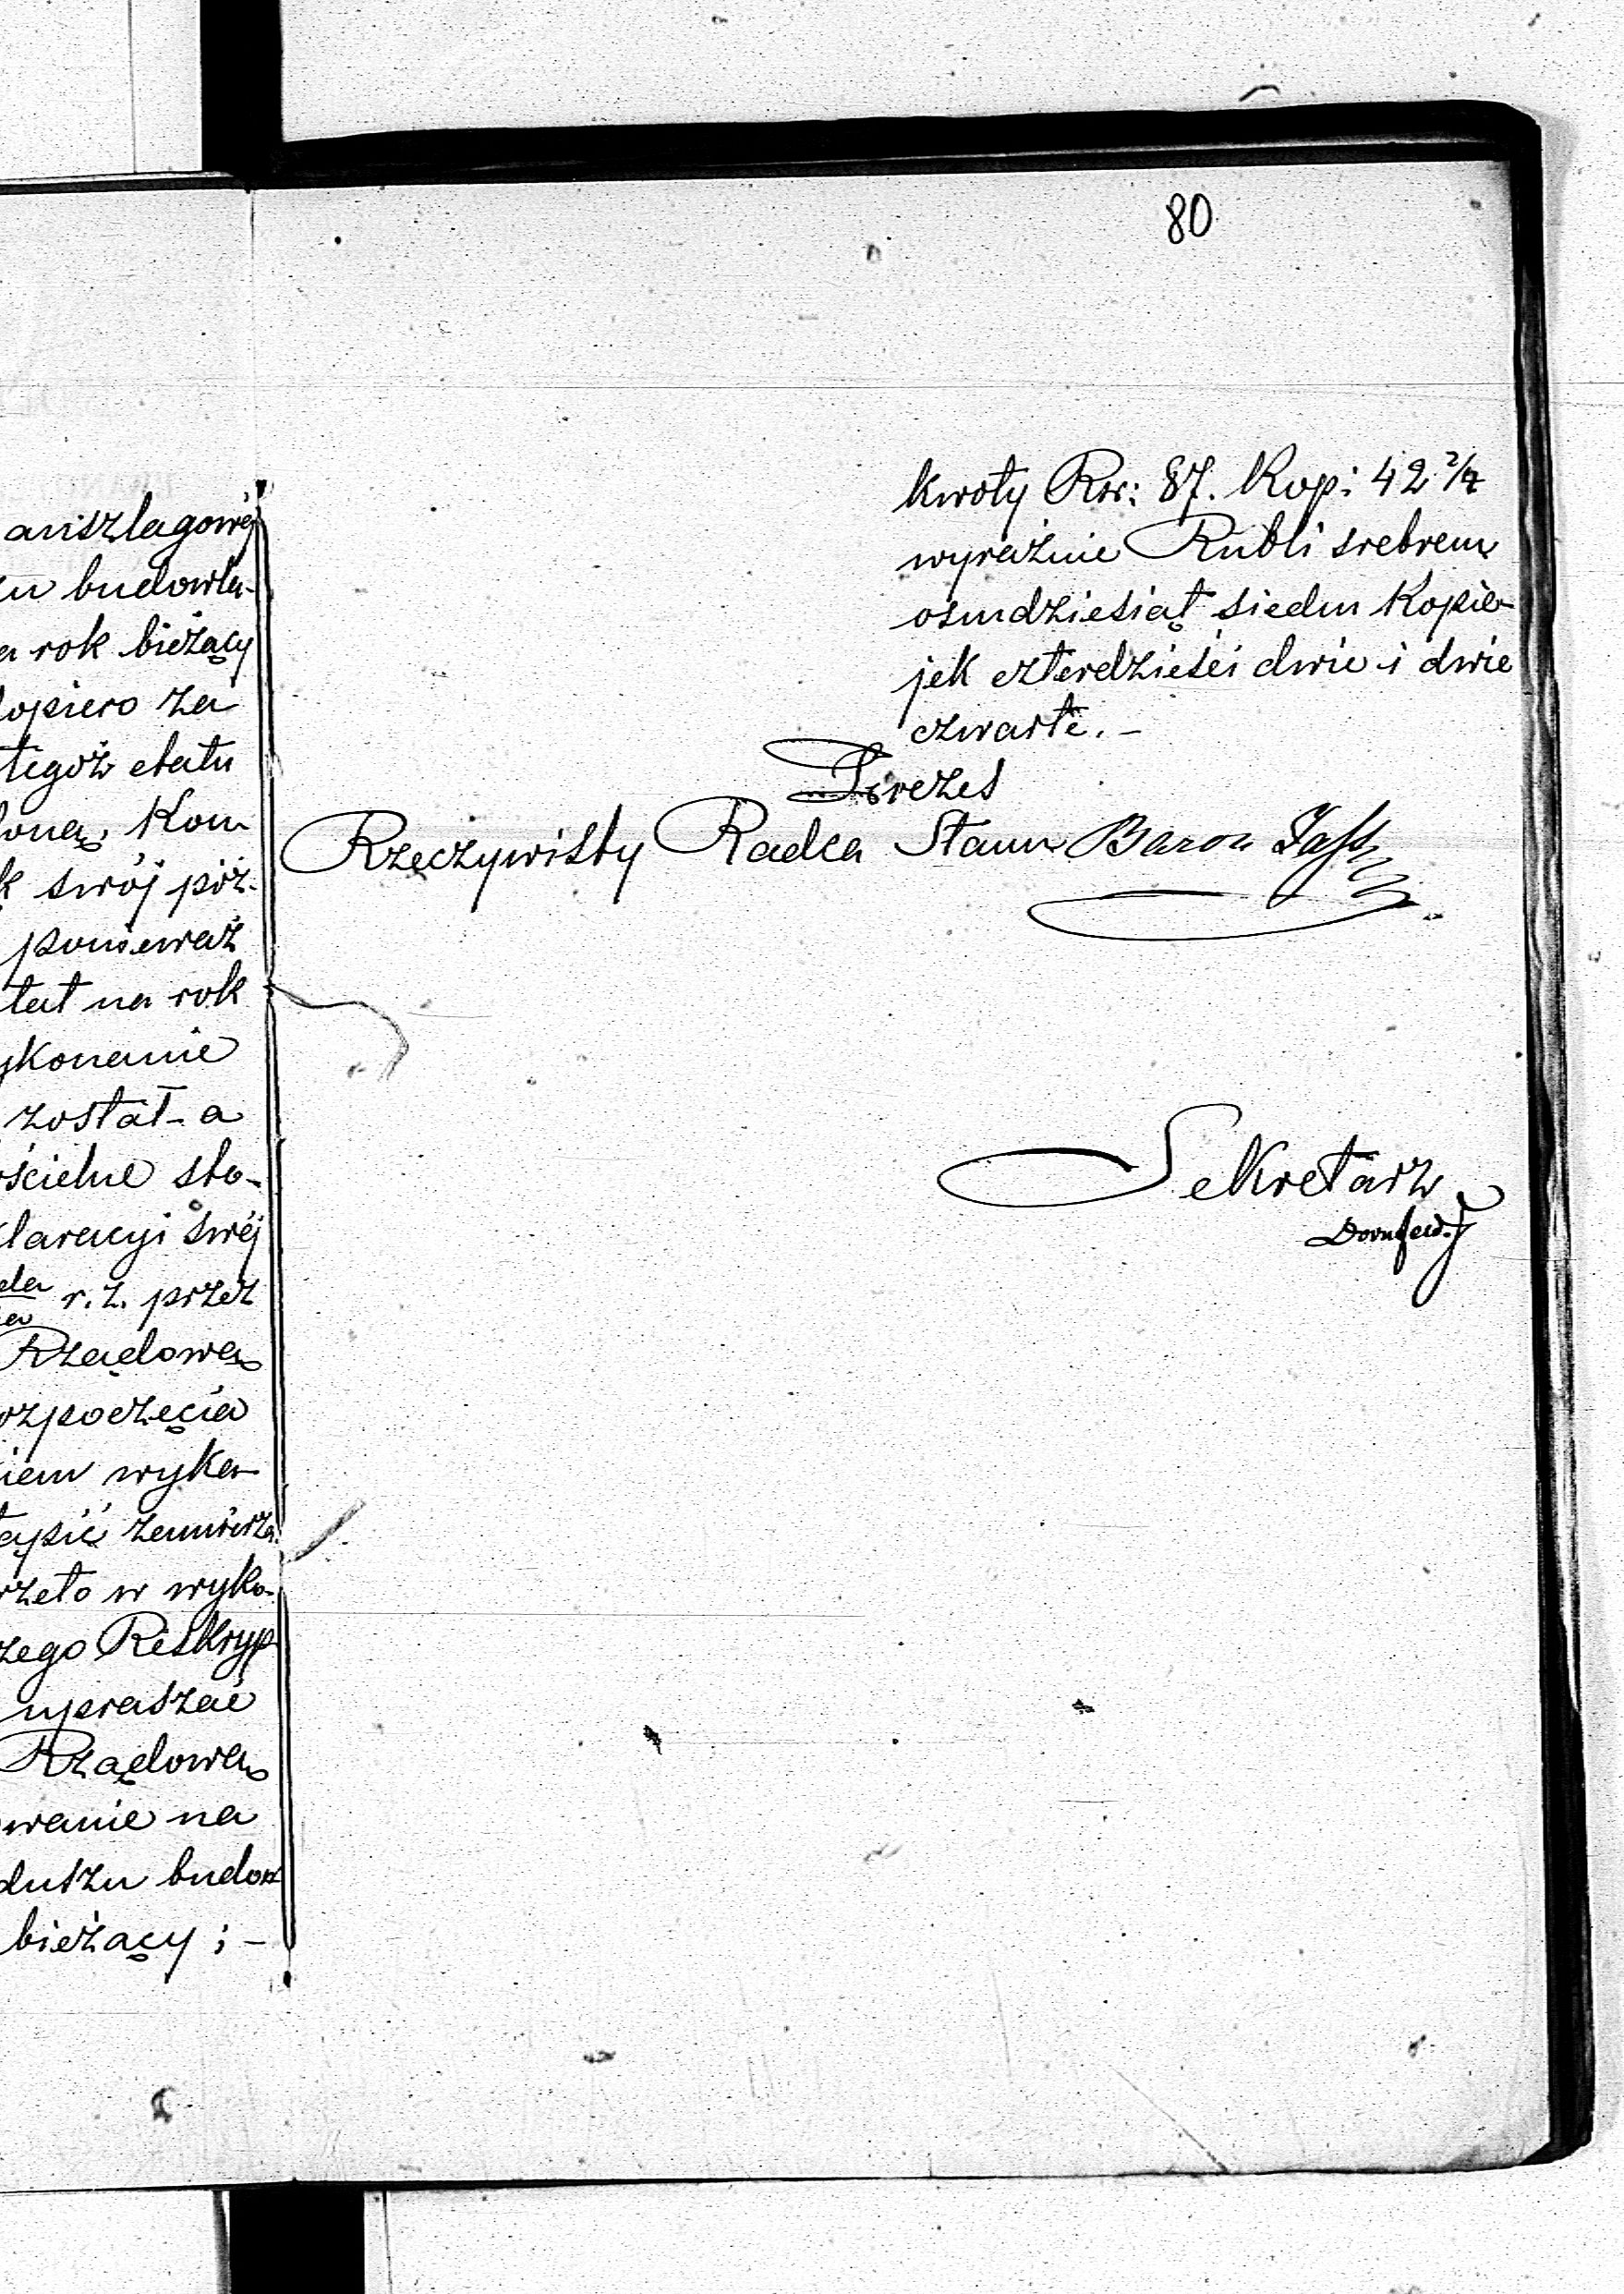 80
anszlagowéj
u budowla-
a rok bieżący
dopiero za
tegoż etatu
loną, Kom
k swój póz-
ponieważ
tat na rok
ykonanie
został a
ościelne sto-
klaracyi swéj
r. z. przez
Rządową
ozpoczęcia
niem wyka-
tąpić zamierza
rzeto w wyko-
zego Reskryp
upraszać
Rządową
wanie na
duszu budow
bieżący ; -
kwoty Rsr: 87. Kop: 42 2/4
wyraźnie Rubli srebrem
osmdziesiąt siedm Kopie-
jek czterdzieści dwie i dwie
czwarte. -
Prezes
Rzeczywisty Radca Stanu Baron
Sekretarz